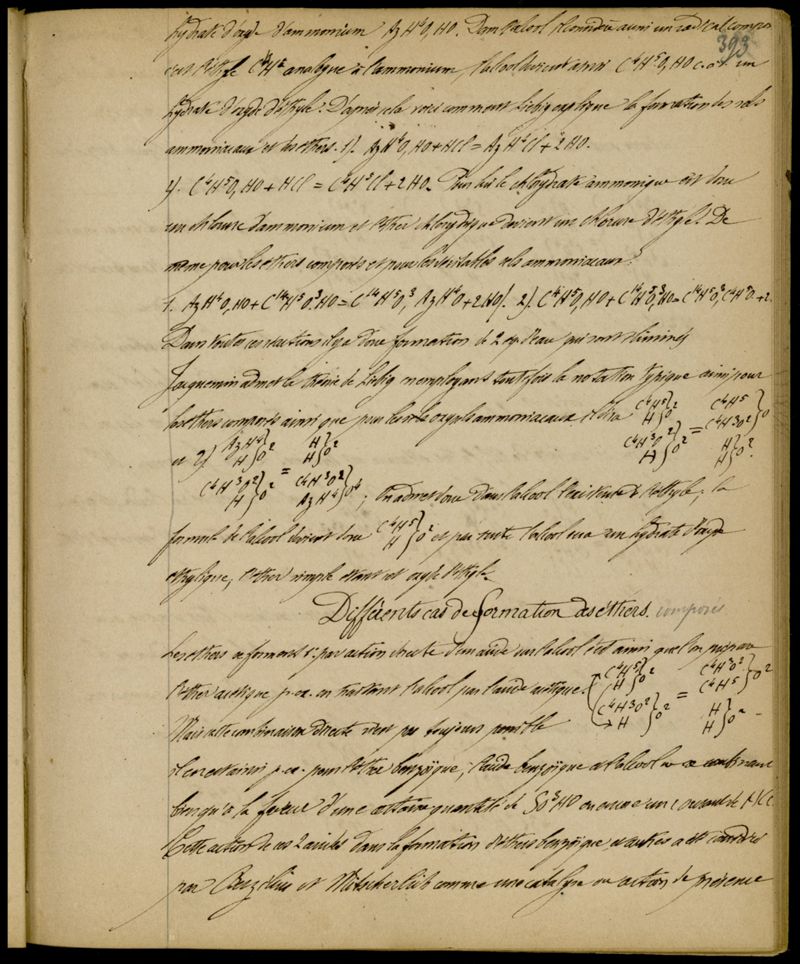 393
hydrate d'oxyde d'ammonium AzH⁴O, HO. Dans l'alcool il considère aussi un radical composé
c'est l'éthyle C⁴H⁵ analogue à l'ammonium, l'alcool devient ainsi C⁴H⁵O, HO c.à.d. un
hydrate d'oxyde d'éthyle. D'après cela voici comment Liebig explique la formation des sels
ammoniacaux et des éthers. 1). AzH⁴O, HO + HCl = AzH⁴Cl + 2HO.
2). C⁴H⁵O, HO + HCl = C⁴H⁵Cl + 2HO. Pour lui le chlorhydrate ammonique est donc
un chlorure d'ammonium et l'éther chlorhydrique devient un chlorure d'éthyle. De
même pour les éthers composés et pour les véritables sels ammoniacaux.
1. AzH⁴O, HO + C¹⁴H⁵O³, HO = C¹⁴H⁵O³, AzH⁴O + 2HO). 2). C⁴H⁵O, HO + C¹⁴H⁵O³, HO = C¹⁴H⁵O³, C⁴H⁵O + 2.
Dans toutes ces réactions il y a donc formation de 2 eq. d'eau qui sont éliminés
Jacquemin admet la théorie de Liebig en employant toutefois la notation typique ainsi pour
les éthers composés ainsi que pour les sels oxydés ammoniacaux C⁴H⁵ H }O² C⁴H³O² H }O² = C⁴H⁵ C⁴H³O² }O H H }O².
et 2) AzH⁴ H }O² C⁴H³O² H }O² = H H }O² C⁴H³O² AzH⁴ }O⁴; On admet donc dans l'alcool l'existence de l'éthyle; la
formule de l'alcool devient donc C⁴H⁵ H }O² et par suite l'alcool sera un hydrate d'oxyde
éthylique, l'éther simple étant cet oxyde d'éthyle.
Différents cas de formation des éthers. composés
Les éthers se forment 1: par action directe d'un acide sur l'alcool c'est ainsi que l'on prépare
l'éther acétique p. ex. en traitant l'alcool par l'acide acétique. C⁴H⁵ H }O² C⁴H³O² H }O² = C⁴H³O² C⁴H⁵ }O² H H }O² -
Mais cette combinaison directe n'est pas toujours possible
il en est ainsi p. ex. pour l'éther benzoïque; l'acide benzoïque et l'alcool ne se combinent
bien qu'à la faveur d'une certaine quantité de SO³HO ou encore un courant de HCl.
Cette action de ces 2 acides dans la formation d'éthers benzoïque et autres a été considéré
par Berzélius et Mitscherlich comme une catalyse ou action de présence